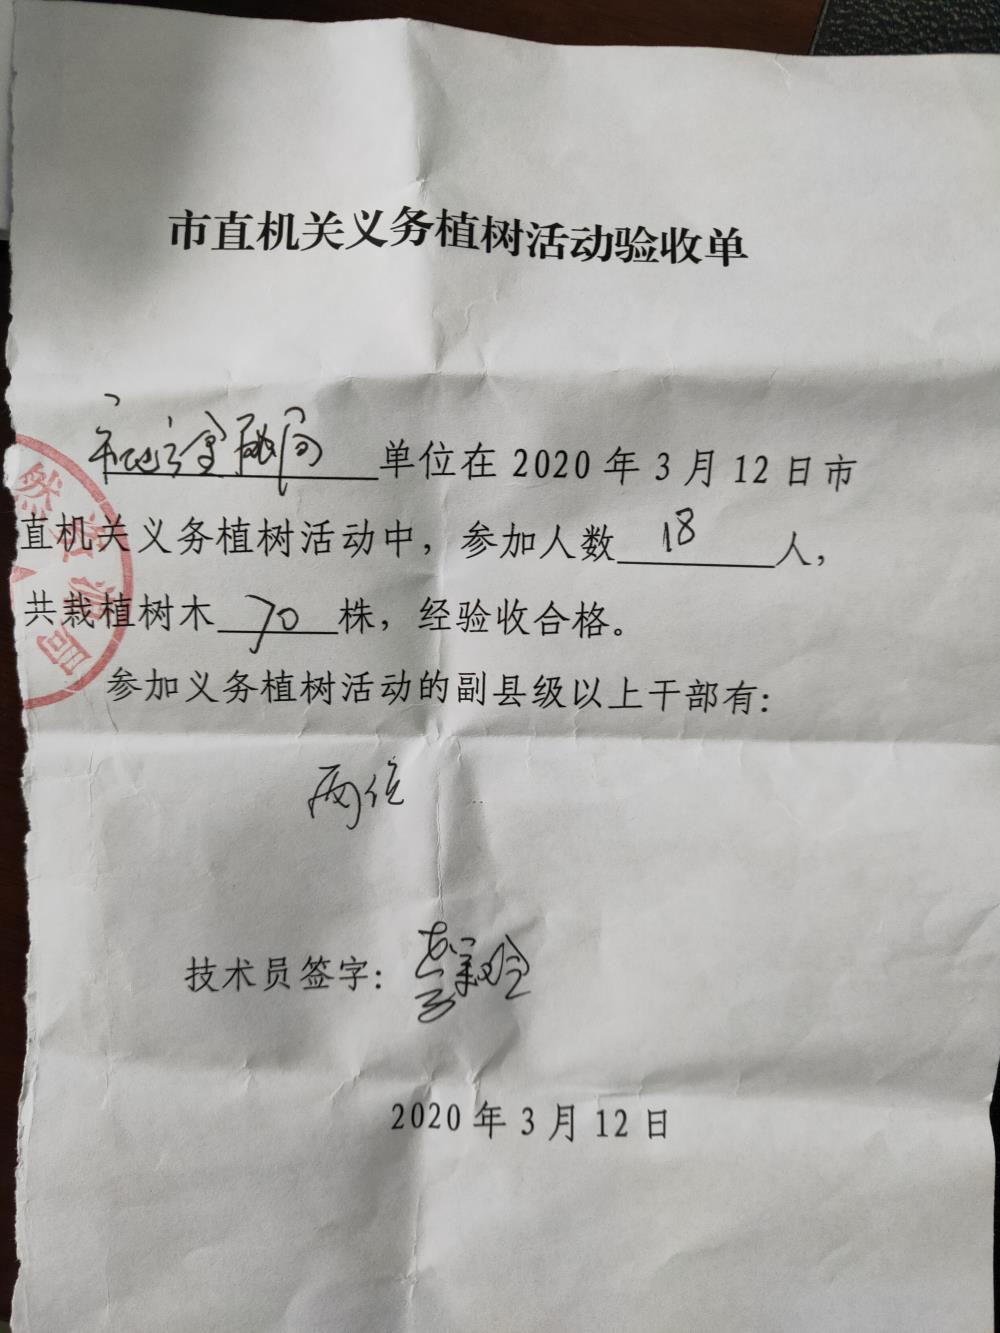 市直机关义务植树活动验收单
市地方金融局单位在2020年3月12日市
直机关义务植树活动中，参加人数18人，
共栽植树木70株，经验收合格。
参加义务植树活动的副县级以上干部有：
两位
技术员签字：
2020年3月12日
然资源局